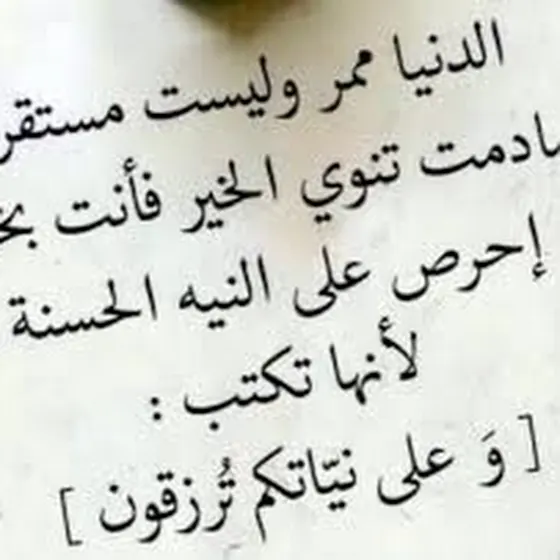 الدنيا ممر وليست مستقر
مادمت تنوي الخير فأنت
إحرص على النيه الحسنة
لأنها تكتب :
[ وَ على نيّاتكم تُرزقون ]